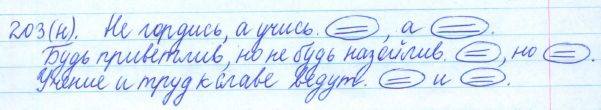 203(н). Не гордись, а учись. , а .
Будь приветлив, но не будь назойлив. , но .
Учение и труд к славе ведут. и .